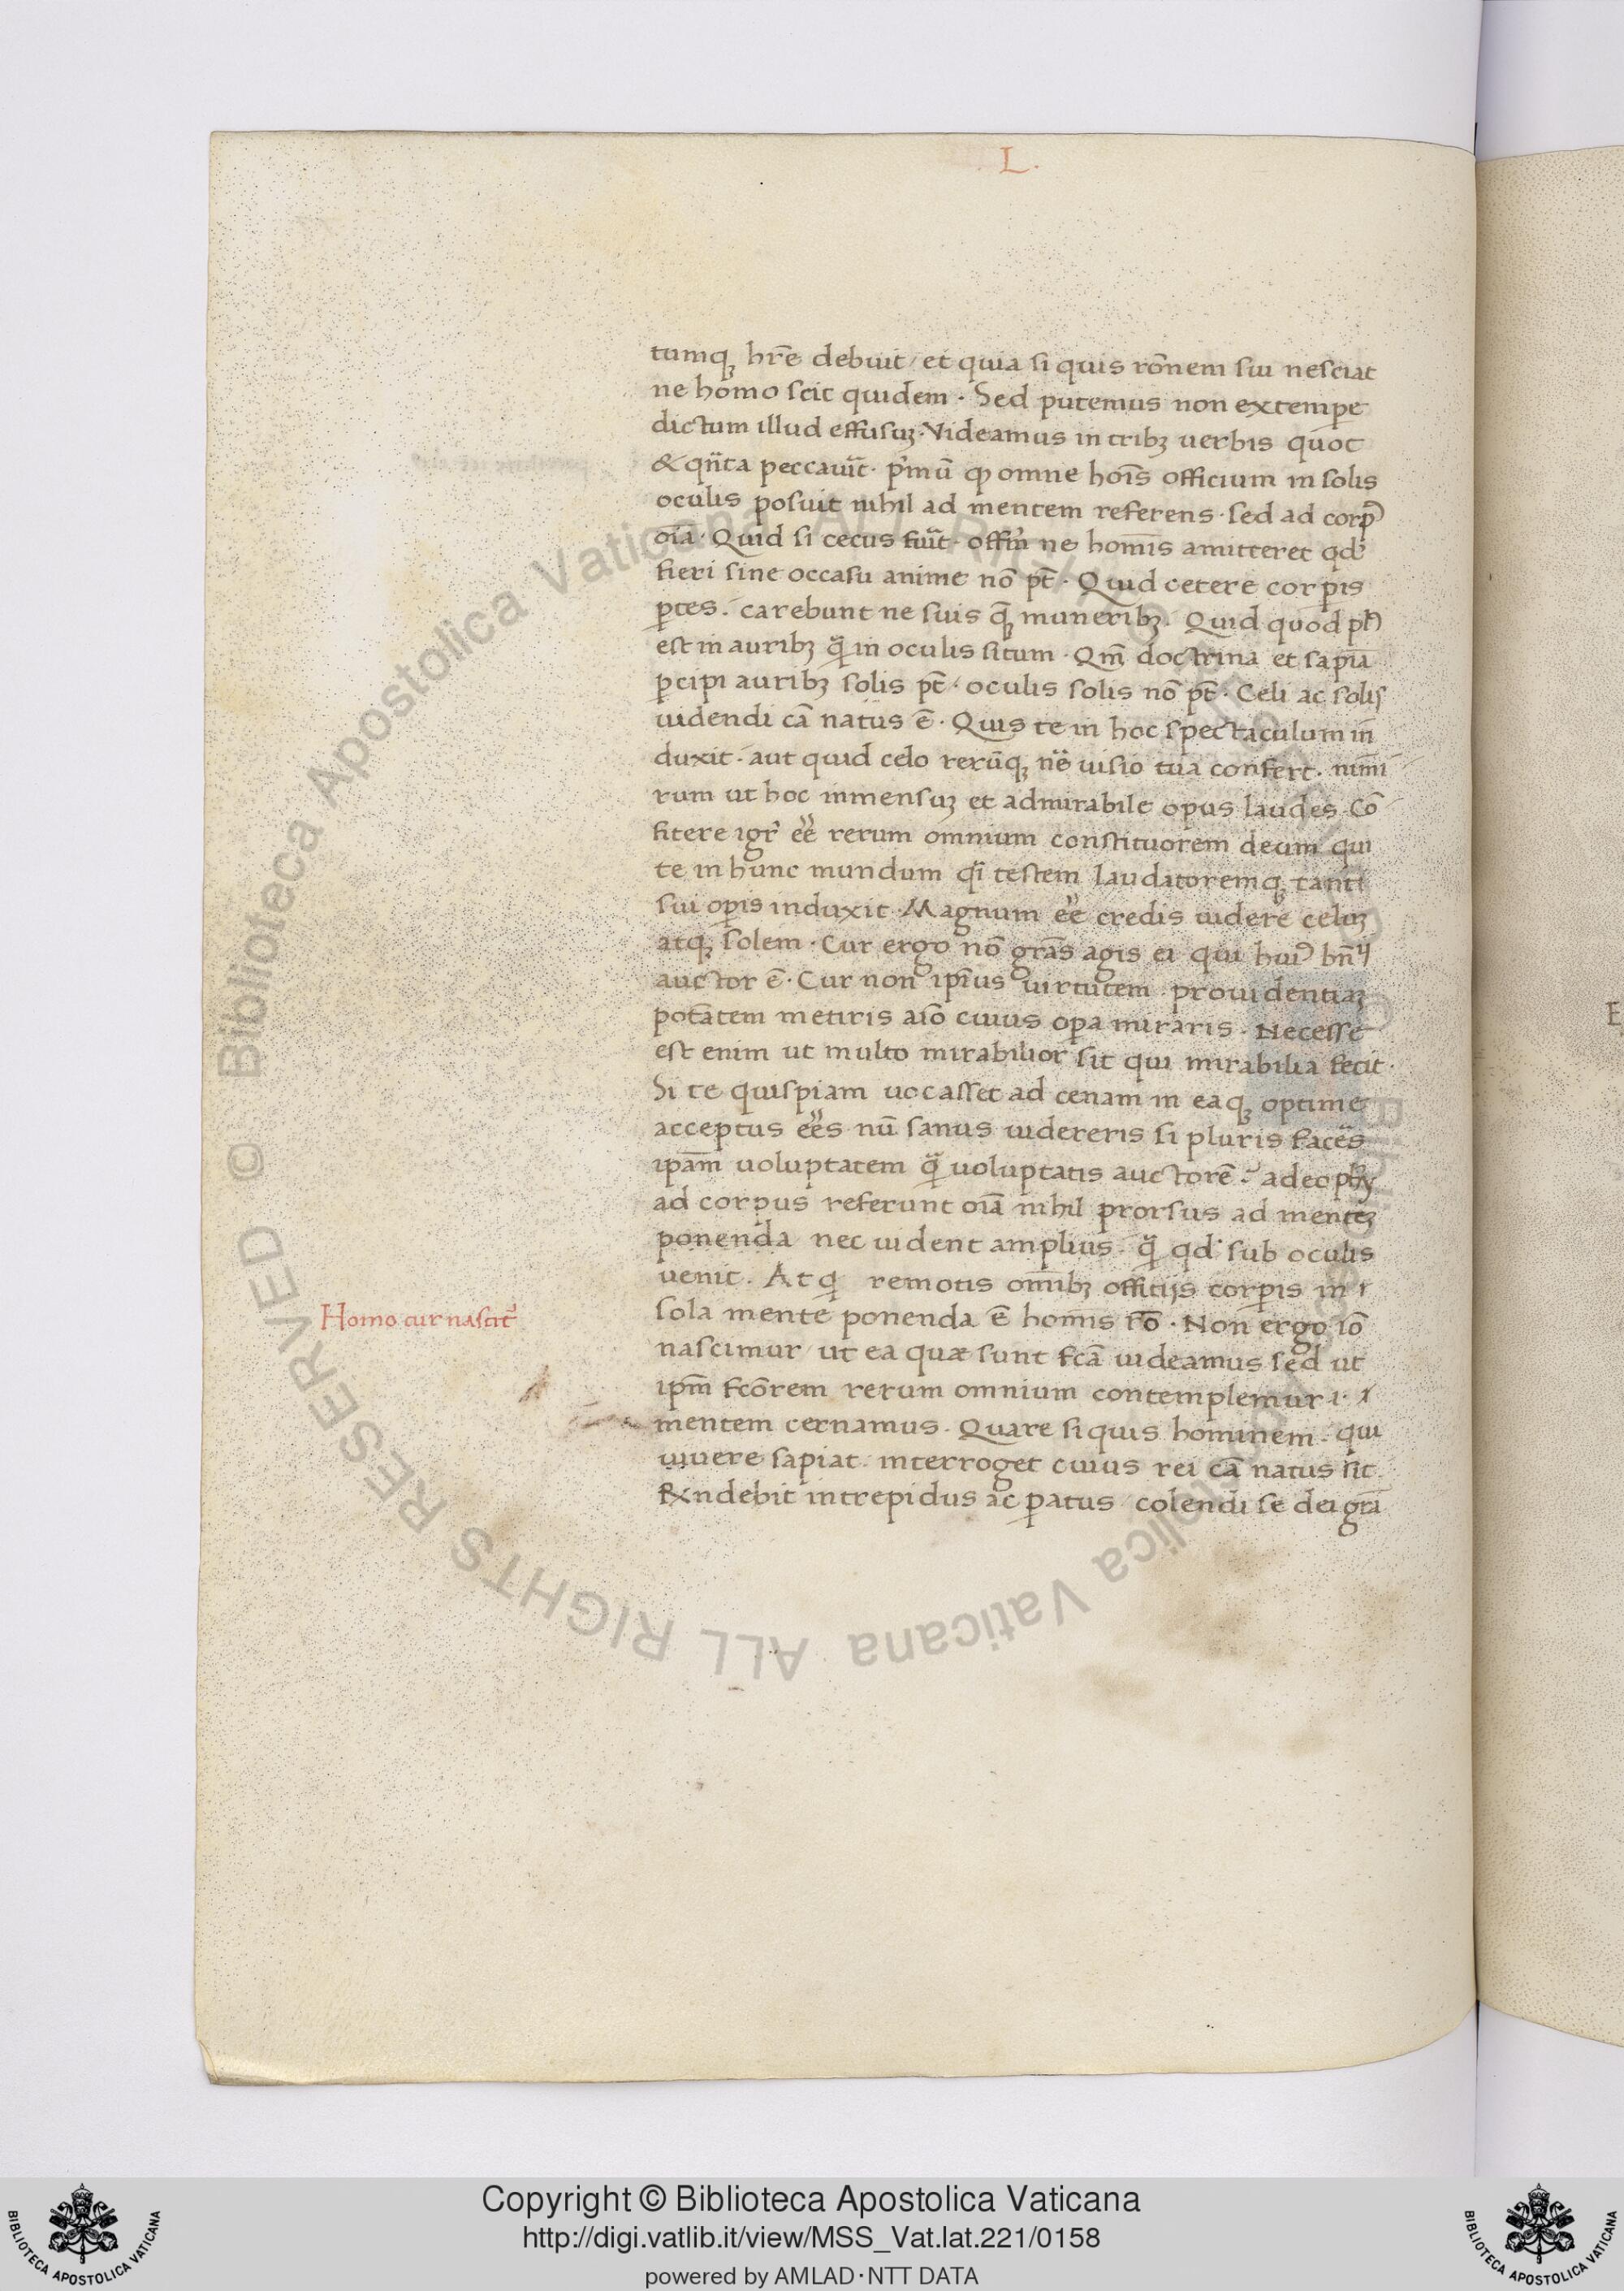 L.
tumqꝫ hr̄e debuit / et quia si quis rōnem sui nesciat
ne homo scit quidem · Sed putemus non extempe
dictum illud effusuꝫ · Videamus in tribꝫ uerbis quot
& qn̄ta peccauīt · p̄mū ꝙ omne hoīs officium in solis
oculis posuit nihil ad mentem referens · sed ad corpꝰ
oīa · Quid si cecus fuīt · offm̄ ne hominis amitteret qd̓
fieri sine occasu anime nō pt̄ · Quid cetere corpis
ptes · carebunt ne suis qꝫ muneribꝫ · Quid quod plꝰ
est in auribꝫ q̄ in oculis situm · Qm̄ doctrina et sapīa
pcipi auribꝫ solis pt̄ · oculis solis nō pt̄ · Celi ac solis
uidendi cā natus ē · Quis te in hoc spectaculum in
duxit · aut quid celo rerūqꝫ ne uisio tua confert · nimi
rum ut hoc inmensuꝫ et admirabile opus laudes · Cō
fitere igr̄ eē rerum omnium constituorem deum qui
te in hunc mundum q̄i testem laudatoremqꝫ tanti
sui opis induxit · Magnum eē credis uidere celuꝫ
atqꝫ solem · Cur ergo nō grās agis ei qui huiꝰ bn̄ij
auctor ē · Cur non ipīus uirtutem prouidentiaꝫ
potātem metiris aīo cuius opa miraris · Necesse
est enim ut multo mirabilior sit qui mirabilia fecit ·
Si te quispiam uocasset ad cenam in eaqꝫ optime
acceptus eēs nū sanus uidereris si pluris facēs
ipām uoluptatem q̄ uoluptatis auctorē · adeo phy
ad corpus referunt oīa nihil prorsus ad menteꝫ
ponenda nec uident amplius · q̄ qd̓ sub oculis
uenit · Atq remotis omībꝫ offitijs corpis in
sola mente ponenda ē hominis rō · Non ergo iō
Homo cur nascit̄
nascimur / ut ea quæ sunt fcā uideamus sed ut
ipm̄ fcōrem rerum omnium contemplemur · i ·
mentem cernamus · Quare si quis hominem · qui
uiuere sapiat · interroget cuius rei cā natus sit
Rn̄debit intrepidus ac patus colendi se dei grā
Copyright © Biblioteca Apostolica Vaticana
http://digi.vatlib.it/view/MSS_Vat.lat.221/0158
powered by AMLAD·NTT DATA
BIBLIOTECA APOSTOLICA VATICANA
BIBLIOTECA APOSTOLICA VATICANA
© Biblioteca Apostolica Vaticana ALL RIGHTS RESERVED